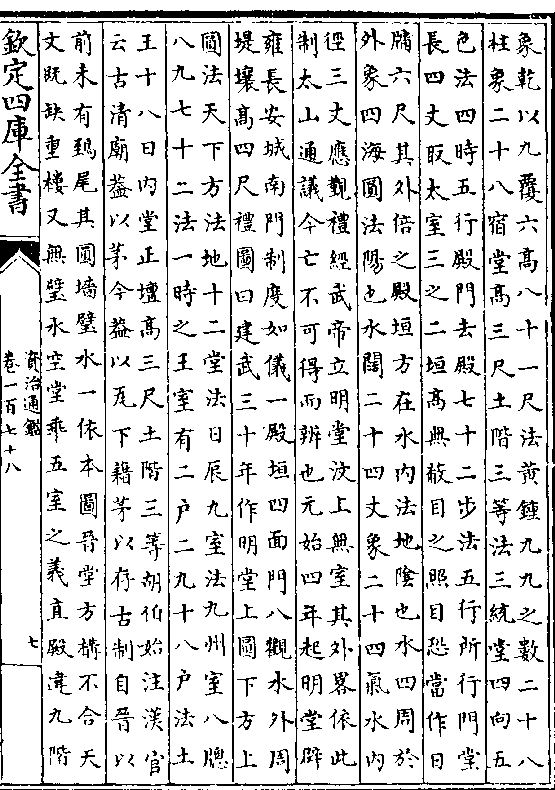 象乾以九覆六高八十一尺法黃鍾九九之數二十八
柱象二十八宿堂高三尺土階三等法三統堂四向五
色法四時五行殿門去殿七十二步法五行所行門堂
長四丈取太室三之二垣高無蔽目之照目恐當作日
牖六尺其外倍之殿垣方在水内法地陰也水四周於
外象四海圓法陽也水闊二十四丈象二十四氣水内
徑三丈應觀禮經武帝立明堂汶上無室其外畧依此
制太山通議今亡不可得而辨也元始四年起明堂辟
雍長安城南門制度如儀一殿垣四面門八觀水外周
堤壤高四尺禮圖曰建武三十年作明堂上圓下方上
圓法天下方法地十二堂法日辰九室法九州室八牎
八九七十二法一時之王室有二户二九十八户法土
王十八日内堂正壇高三尺土階三等胡伯始注漢官
云古清廟葢以茅今葢以瓦下藉茅以存古制自晉以
前未有鴟尾其圓墻璧水一依本圖晉堂方構不合天
文既缺重樓又無璧水空堂乖五室之義直殿違九階
欽定四庫全書
資治通鑑
卷一百七十八
七